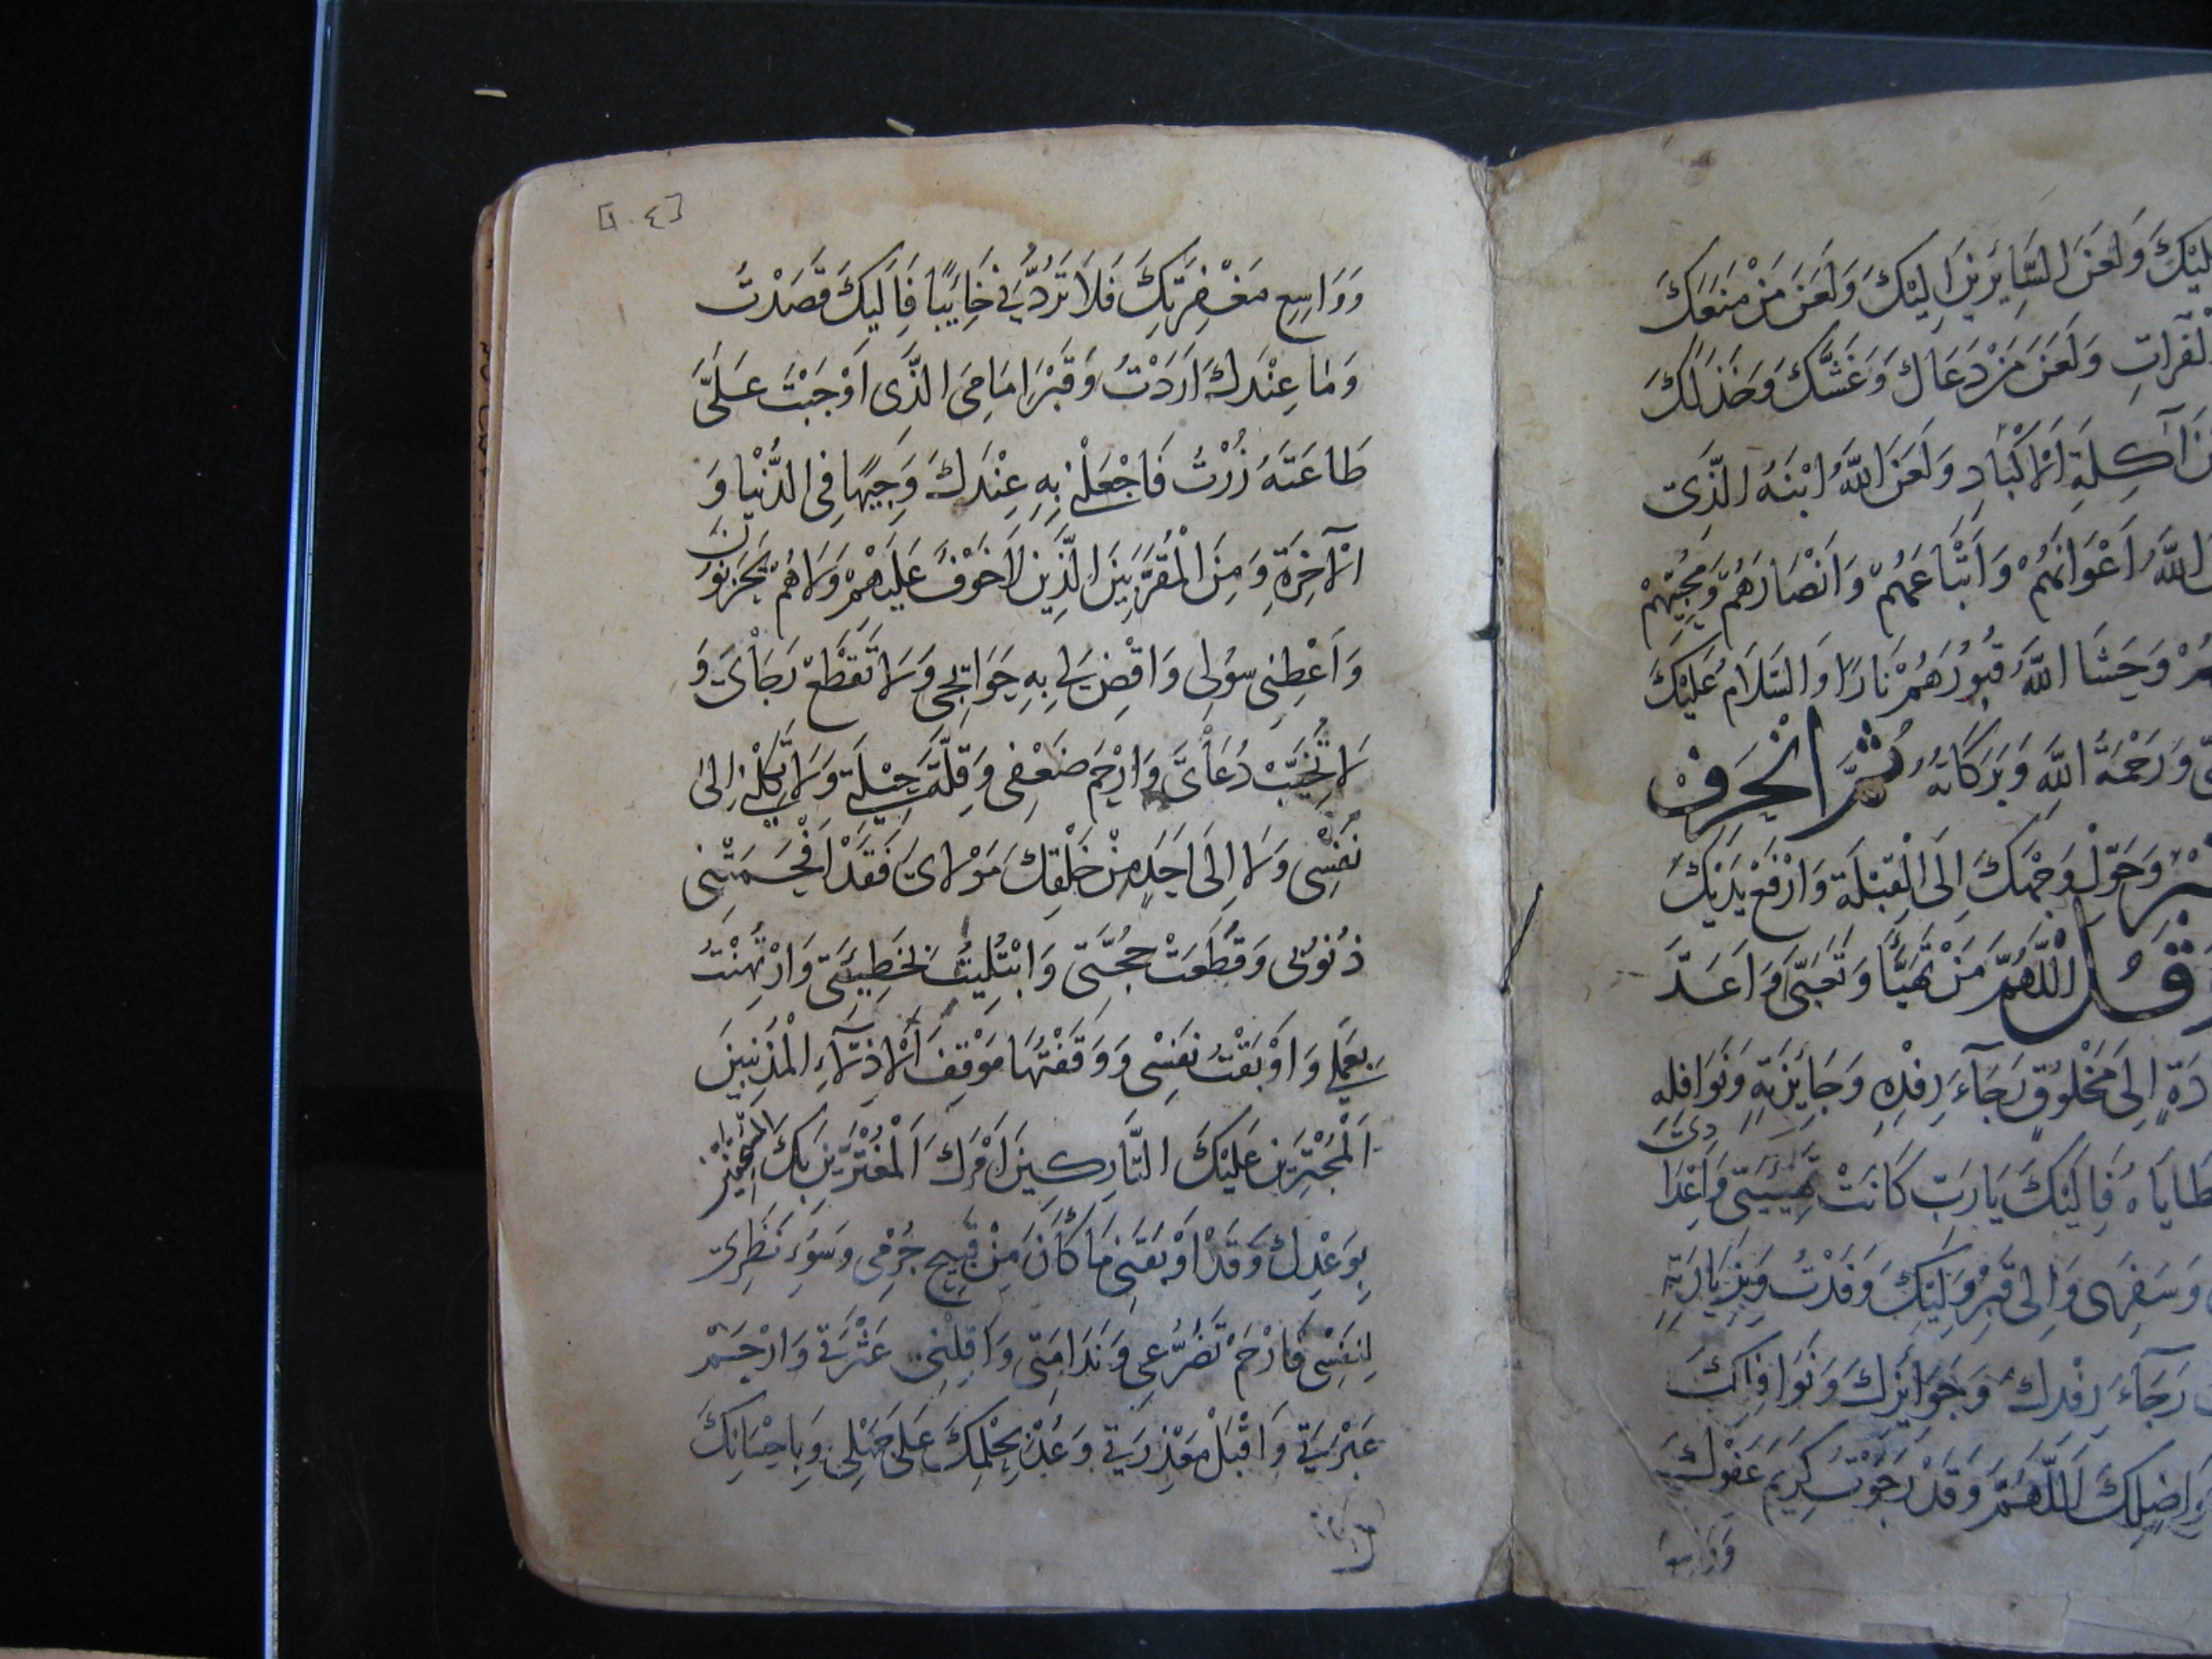 لَيْكَ وَلَعَنَ السَّايِرِينَ اِلَيْكَ وَلَعَنَ مَنْ مَنَعَكَ
الْفُرَاتِ وَلَعَنَ مَنْ دَعَاكَ وَغَشَّكَ وَخَذَلَكَ
آكِلَةِ الْاَكْبَادِ وَلَعَنَ اللهُ ابْنَهُ الَّذِى
اللهُ اَعْوَانَهُمْ وَاَتْبَاعَهُمْ وَاَنْصَارَهُمْ وَمُحِبِّيهِمْ
وَحَشَا اللهُ قُبُورَهُمْ نَارًا وَالسَّلَامُ عَلَيْكَ
وَرَحْمَةُ اللهِ وَبَرَكَاتُهُ ثُمَّ انْحَرِفْ
وَحَوِّلْ وَجْهَكَ اِلَى الْقِبْلَةِ وَارْفَعْ يَدَيْكَ
وَقُلْ اَللّٰهُمَّ مَنْ تَهَيَّأَ وَتَعَبَّى وَاَعَدَّ
دَةٍ اِلَى مَخْلُوقٍ رَجَآءَ رِفْدِهِ وَجَايِزَتِهِ وَنَوَافِلِهِ
طَايَاهُ فَاِلَيْكَ يَارَبِّ كَانَتْ تَهْيِئَتِى وَاِعْدَادِى
وَسَفَرِى وَاِلَى قَبْرِ وَلِيِّكَ وَفَدْتُ وَبِزِيَارَتِهِ
رَجَآءَ رِفْدِكَ وَجَوَايِزِكَ وَنَوَافِلِكَ
وَفَوَاضِلِكَ اَللّٰهُمَّ وَقَدْ رَجَوْتُ كَرِيمَ عَفْوِكَ
وَوَاسِعَ
[١٠٤]
وَوَاسِعِ مَغْفِرَتِكَ فَلَا تَرُدَّنِى خَايِبًا فَاِلَيْكَ قَصَدْتُ
وَمَا عِنْدَكَ اَرَدْتُ وَقَبْرَ اِمَامِىَ الَّذِى اَوْجَبْتَ عَلَىَّ
طَاعَتَهُ زُرْتُ فَاجْعَلْنِى بِهِ عِنْدَكَ وَجِيهًا فِى الدُّنْيَا وَ
الْآخِرَةِ وَمِنَ الْمُقَرَّبِينَ الَّذِينَ لَا خَوْفٌ عَلَيْهِمْ وَلَا هُمْ يَحْزَنُونَ
وَاَعْطِنِى سُؤْلِى وَاقْضِ لِى بِهِ حَوَائِجِى وَلَا تَقْطَعْ رَجَائِى وَ
لَا تُخَيِّبْ دُعَائِى وَارْحَمْ ضَعْفِى وَقِلَّةَ حِيلَتِى وَلَا تَكِلْنِى اِلَى
نَفْسِى وَلَا اِلَى اَحَدٍ مِنْ خَلْقِكَ مَوْلَاىَ فَقَدْ اَفْحَمَتْنِى
ذُنُوبِى وَقَطَعَتْ حُجَّتِى وَابْتُلِيتُ بِخَطِيئَتِى وَارْتُهِنْتُ
بِعَمَلِى وَاَوْبَقْتُ نَفْسِى وَوَقَفْتُهَا مَوْقِفَ الْاَذِلَّآءِ الْمُذْنِبِينَ
اَلْمُجْتَرِئِينَ عَلَيْكَ التَّارِكِينَ اَمْرَكَ اَلْمُغْتَرِّينَ بِكَ
بِوَعْدِكَ وَقَدْ اَوْبَقَنِى مَا كَانَ مِنْ قَبِيحِ جُرْمِى وَسُوءِ نَظَرِى
لِنَفْسِى فَارْحَمْ تَضَرُّعِى وَنَدَامَتِى وَاَقِلْنِى عَثْرَتِى وَارْحَمْ
عَبْرَتِى وَاقْبَلْ مَعْذِرَتِى وَعُدْ بِحِلْمِكَ عَلَى جَهْلِى وَبِاِحْسَانِكَ